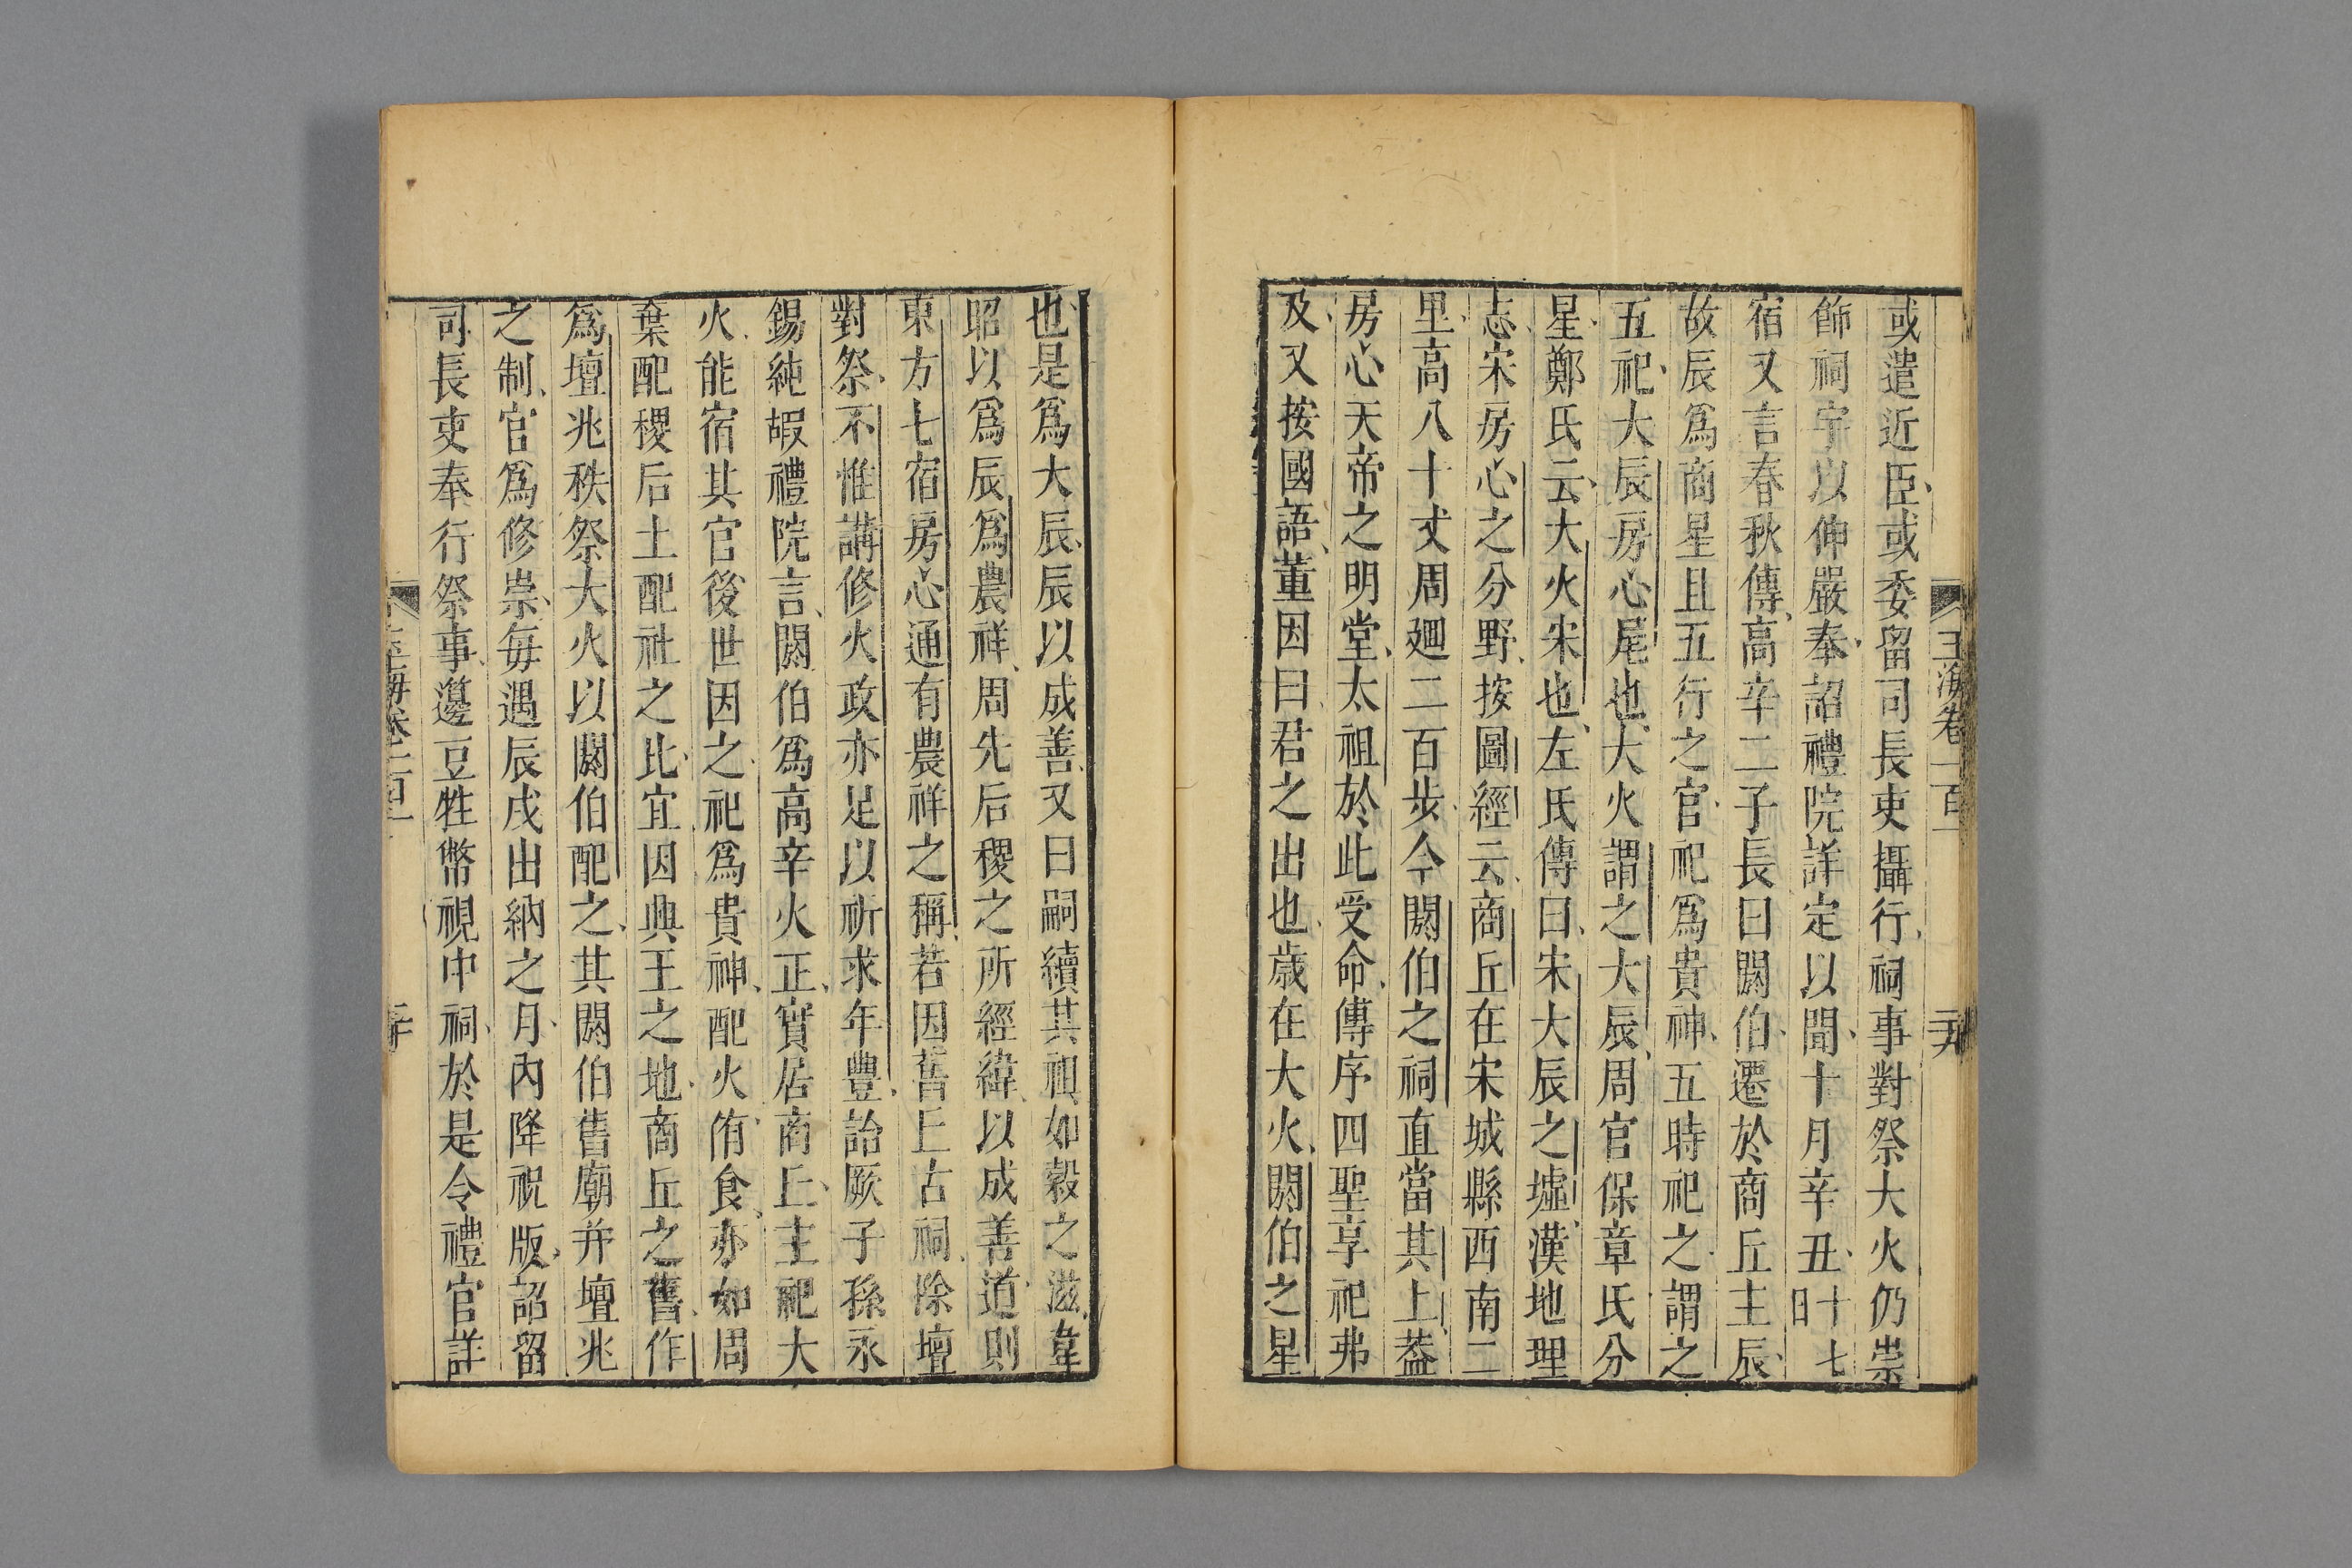 玉海卷一百一
或遣近臣或委留司長吏攝行祠事對祭大火仍崇
飾祠宇以伸嚴奉詔禮院詳定以聞十月辛丑十七日
宿又言春秋傳高辛二子長曰閼伯遷於商丘主辰
故辰爲商星且五行之官祀爲貴神五時祀之謂之
五祀大辰房心尾也大火謂之大辰周官保章氏分
星鄭氏云大火宋也左氏傳曰宋大辰之墟漢地理
志宋房心之分野按圖經云商丘在宋城縣西南二
里高八十丈周廻二百步今閼伯之祠直當其上蓋
房心天帝之明堂太祖於此受命傳序四聖享祀弗
及又按國語董因曰君之出也歲在大火閼伯之星
也是爲大辰辰以成善又曰嗣續其祖如穀之滋韋
昭以爲辰爲農祥周先后稷之所經緯以成善道則
東方七宿房心通有農祥之稱若因舊丘古祠除壇
對祭不惟講修火政亦足以祈求年豐詒厥子孫永
錫純嘏禮院言閼伯爲高辛火正實居商丘主祀大
火能宿其官後世因之祀爲貴神配火侑食亦如周
棄配稷后土配社之比宜因興王之地商丘之舊作
爲壇兆秩祭大火以閼伯配之其閼伯舊廟并壇兆
之制官爲修崇每遇辰戌出納之月內降祝版詔留
司長吏奉行祭事籩豆牲幣視中祠於是令禮官詳